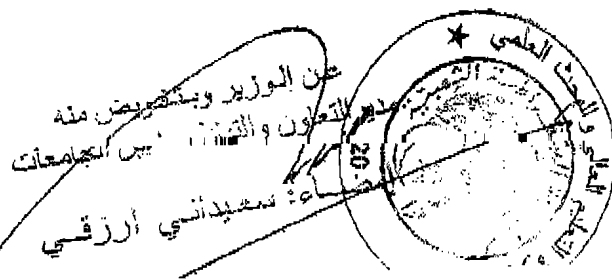 عن الوزير وبتفويض منه
مدير التعاون و التبادل بين الجامعات
إمضاء: سعيداني أرزقي
التعليم العالي و البحث العلمي
الشعبية
20